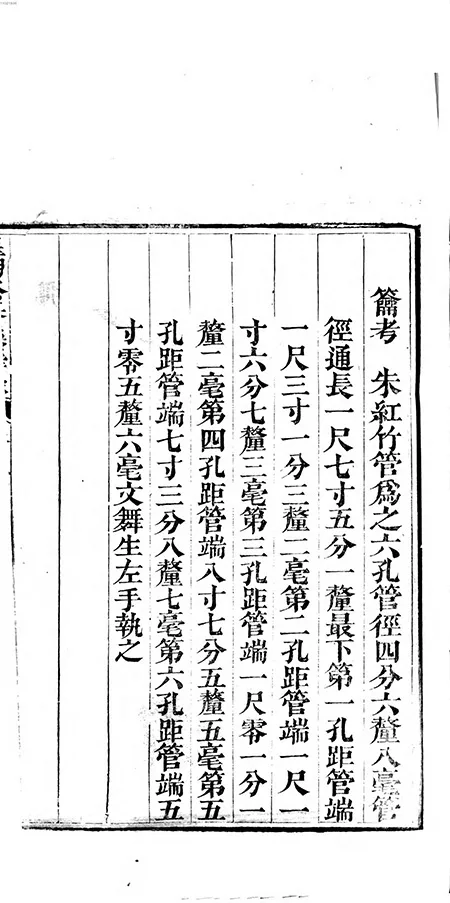 籥考　朱紅竹管爲之六孔管徑四分六釐八毫管
徑通長一尺七寸五分一釐最下第一孔距管端
一尺三寸一分三釐二毫第二孔距管端一尺一
寸六分七釐三毫第三孔距管端一尺零一分一
釐二毫第四孔距管端八寸七分五釐五毫第五
孔距管端七寸三分八釐七毫第六孔距管端五
寸零五釐六毫文舞生左手執之